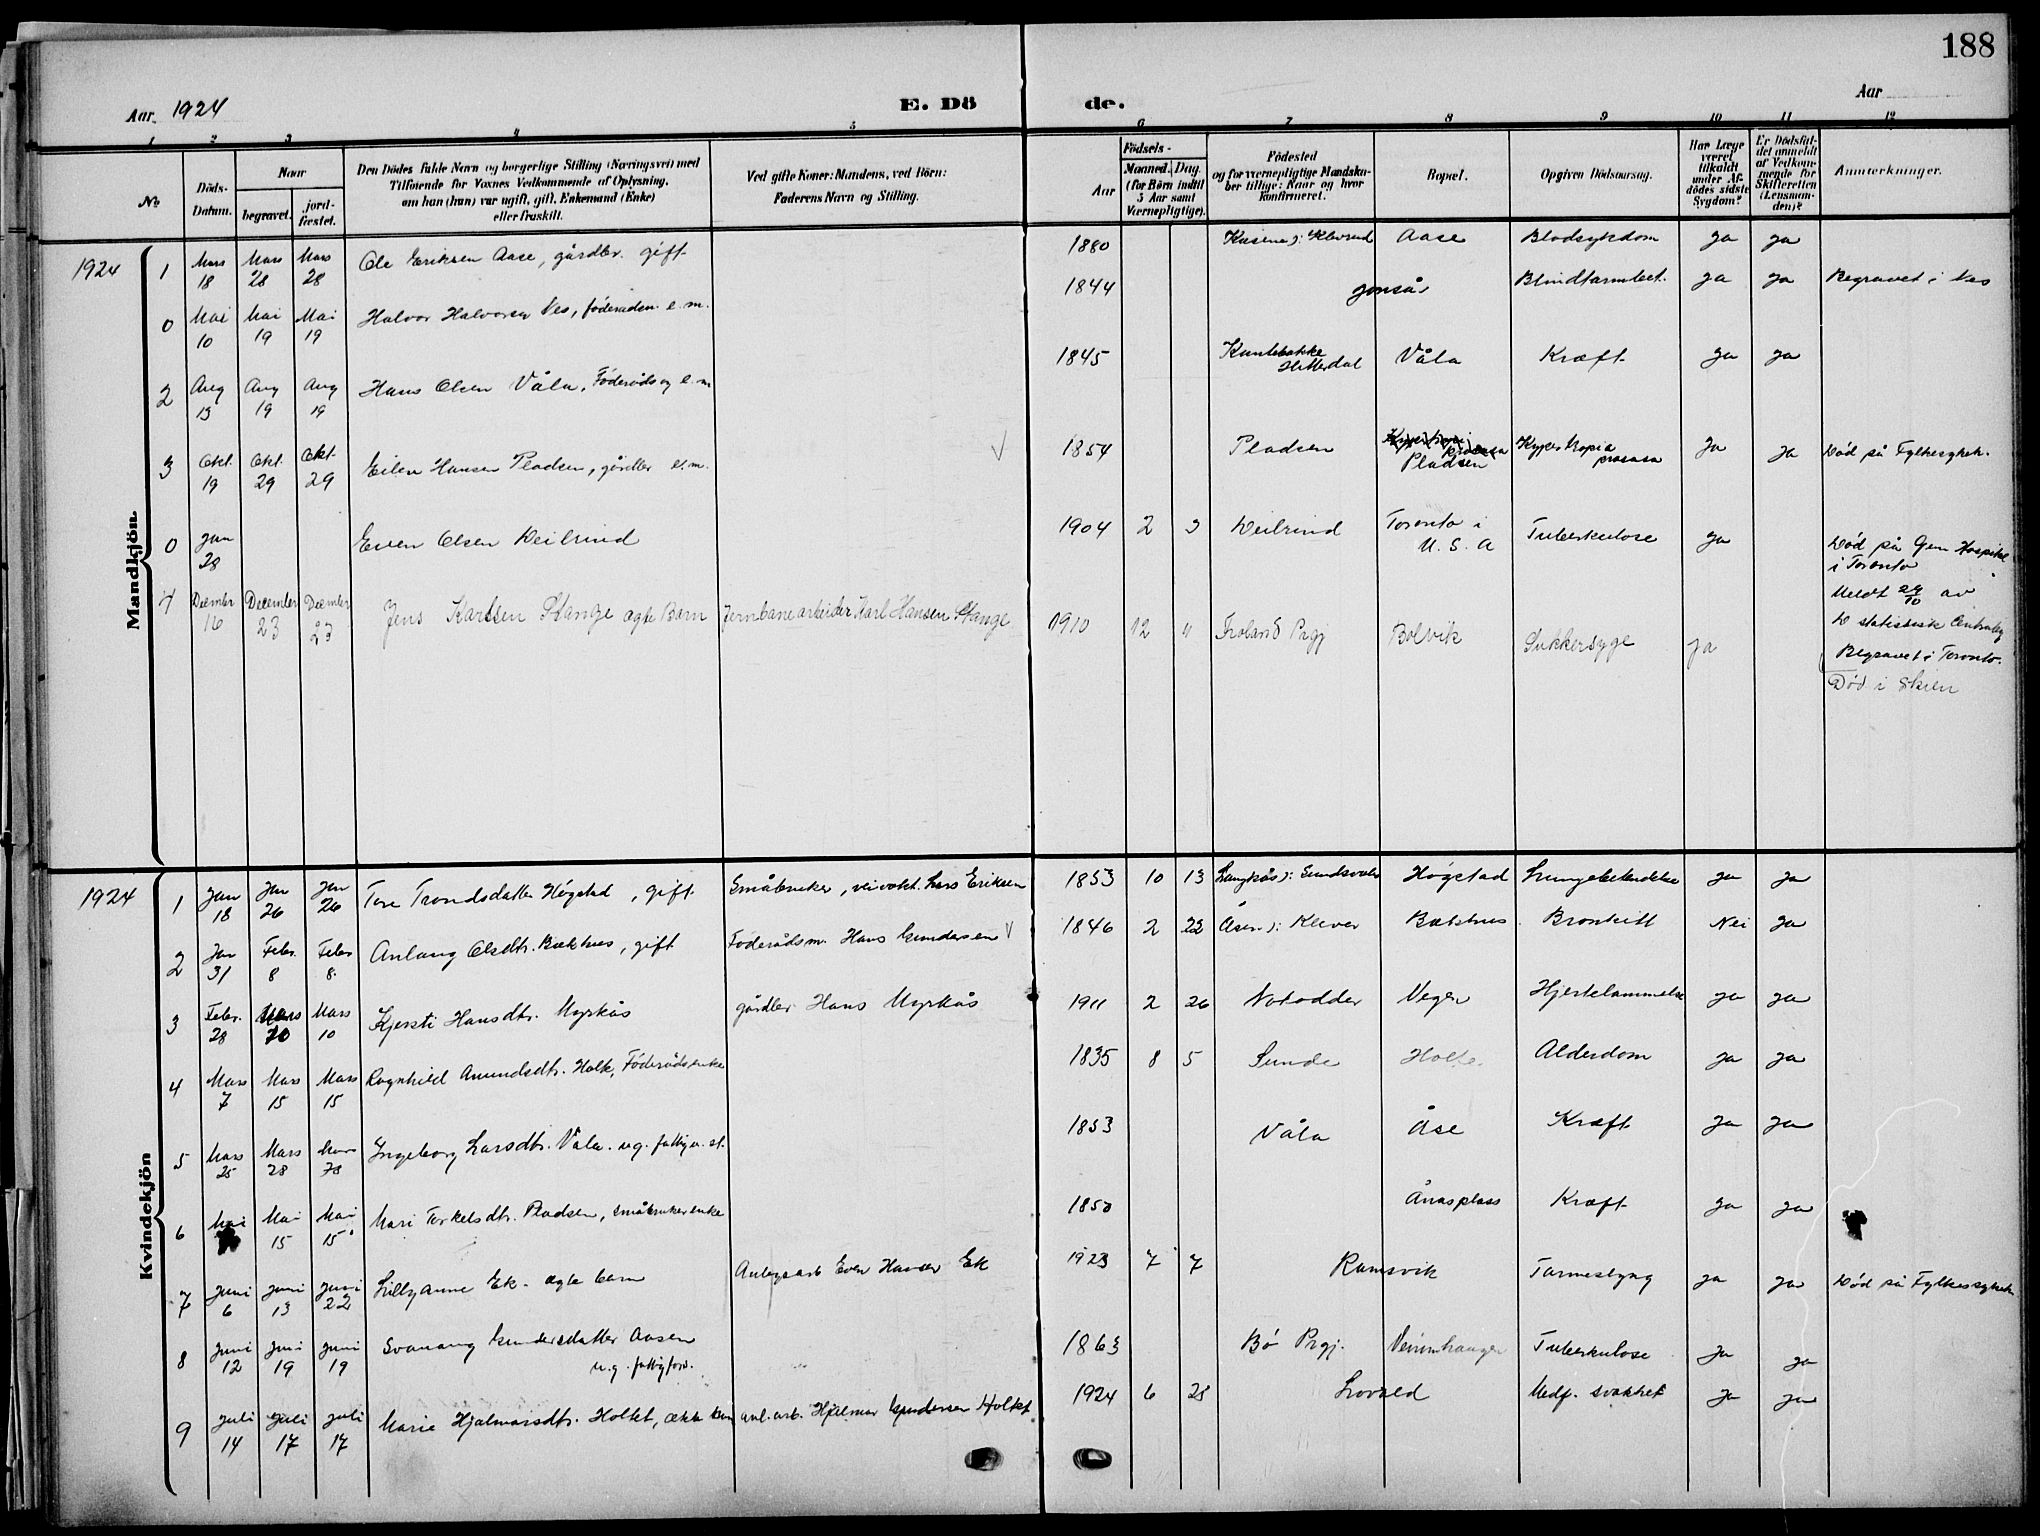 188
Aar 1924 E. Döde. Aar
1 2 3 4 5 6 7 8 9 10 11 12
No.
Döds-Datum.
Naar
begravet.
jordfæstet.
Den Dödes fulde Navn og borgerlige Stilling (Næringsvei) med
Tilföiende for Voxnes Vedkommende af Oplysning,
om han (hun) var ugift, gift, Enkemand (Enke)
eller fraskilt.
Ved gifte Koner: Mandens, ved Börn:
Faderens Navn og Stilling.
Födsels-
Aar
Maaned. Dag.
(for Börn indtil
5 Aar samt
Værnepligtige).
Födested
og for værnepligtige Mandskaber tillige: Naar og hvor
konfirmeret.
Bopæl.
Opgiven Dödsaarsag.
Har Læge
været
tilkaldt
under Afdödes sidste
Sygdom?
Er Dödsfaldet anmeldt
af Vedkommende for
Skifteretten
(Lensmanden)?
Anmærkninger.
Mandkjön.
1924 1 Mars 18 Mars 28 Mars 28 Ole Eriksen Aase, gårdbr. gift 1880 Aase Blodsykdom ja ja
0 Mai 10 Mai 19 Mai 19 Halvor Halvorsen Nes, föderådsm. e.m. 1844 Jonsås Blindtarmbet. ja ja Begravet i Nes
2 Aug 13 Aug 19 Aug 19 Hans Olsen Våla, Föderåds og e.m 1845 Hitterdal Våla Kræft ja ja
3 Okt. 19 Okt. 29 Okt. 29 Hansen Pladsen, gårdbr e.m. 1854 Pladsen Pladsen ja ja Død på Fylkesykeh.
0 Jan 28 Even Olsen Veilrind 1904 2 3 Veilrind Toronto i U.S.A Tuberkulose ja Død på Gen Hospital
i Toronto
Meldt 24/10 av
D statistisk Centralby
Begravet i Toronto.
4 December 16 December 23 December 23 Jens Karlsen Stange ægte Barn Jernbanearbeider Karl Hansen Stange 1910 12 " Froland Prgj Bolvik Sukkersyge ja Død i Skien
Kvindekjön
1924 1 Jan 18 Jan 26 Jan 26 Tore Trondsdatter Högstad, gift Småbruker, veivokt. Lars Eriksen 1853 10 13 Högstad Lungebetændelse ja ja
2 Jan 31 Febr. 8 Febr 8. Anlaug Olsdtr. Bækhus, gift Föderådsm. Hans Gundersen 1846 2 22 Åsen ): Klever Bækhus Bronkitt Nei ja
3 Febr. 28 Mars 10 Mars 10 Kjersti Hansdtr. Myrkås gårdbr Hans Myrkås 1911 2 26 Notodden Vegen Hjertelammelse ja ja
4 Mars 7 Mars 15 Mars 15 Ragnhild Amundsdtr. Holte, Föderådsenke 1835 8 5 Sunde Holte Alderdom ja ja
5 Mars 25 Mars 28 Mars 28 Ingeborg Larsdtr. Våla. ug. fattigu. st. 1853 Våla Åse Kræft ja ja
6 Mai Mai 15 Mai 15 Mari Torkelsdtr. Pladsen, småbrukerenke 1850 Ånasplass Kræft ja ja
7 Juni 6 Juni 13 Juni 22 Lillyanne Ek. ægte barn Anlegsarb Even Hansen Ek 1923 7 7 Ramsvik Tarmeslyng ja ja Død på Fylkessykeh.
8 Juni 12 Juni 19 Juni 19 Svanaug Gundersdatter Aasen
u.g. fattigfors. 1863 Bø Prgj. Tuberkulose Ja ja
9 Juli 14 Juli 17 Juli 17 Marie Hjalmarsdtr. Holtet, ækte barn anl. arb. Hjalmar Gundersen Holtet 1924 6 28 Lovald Medf. svakhet ja ja